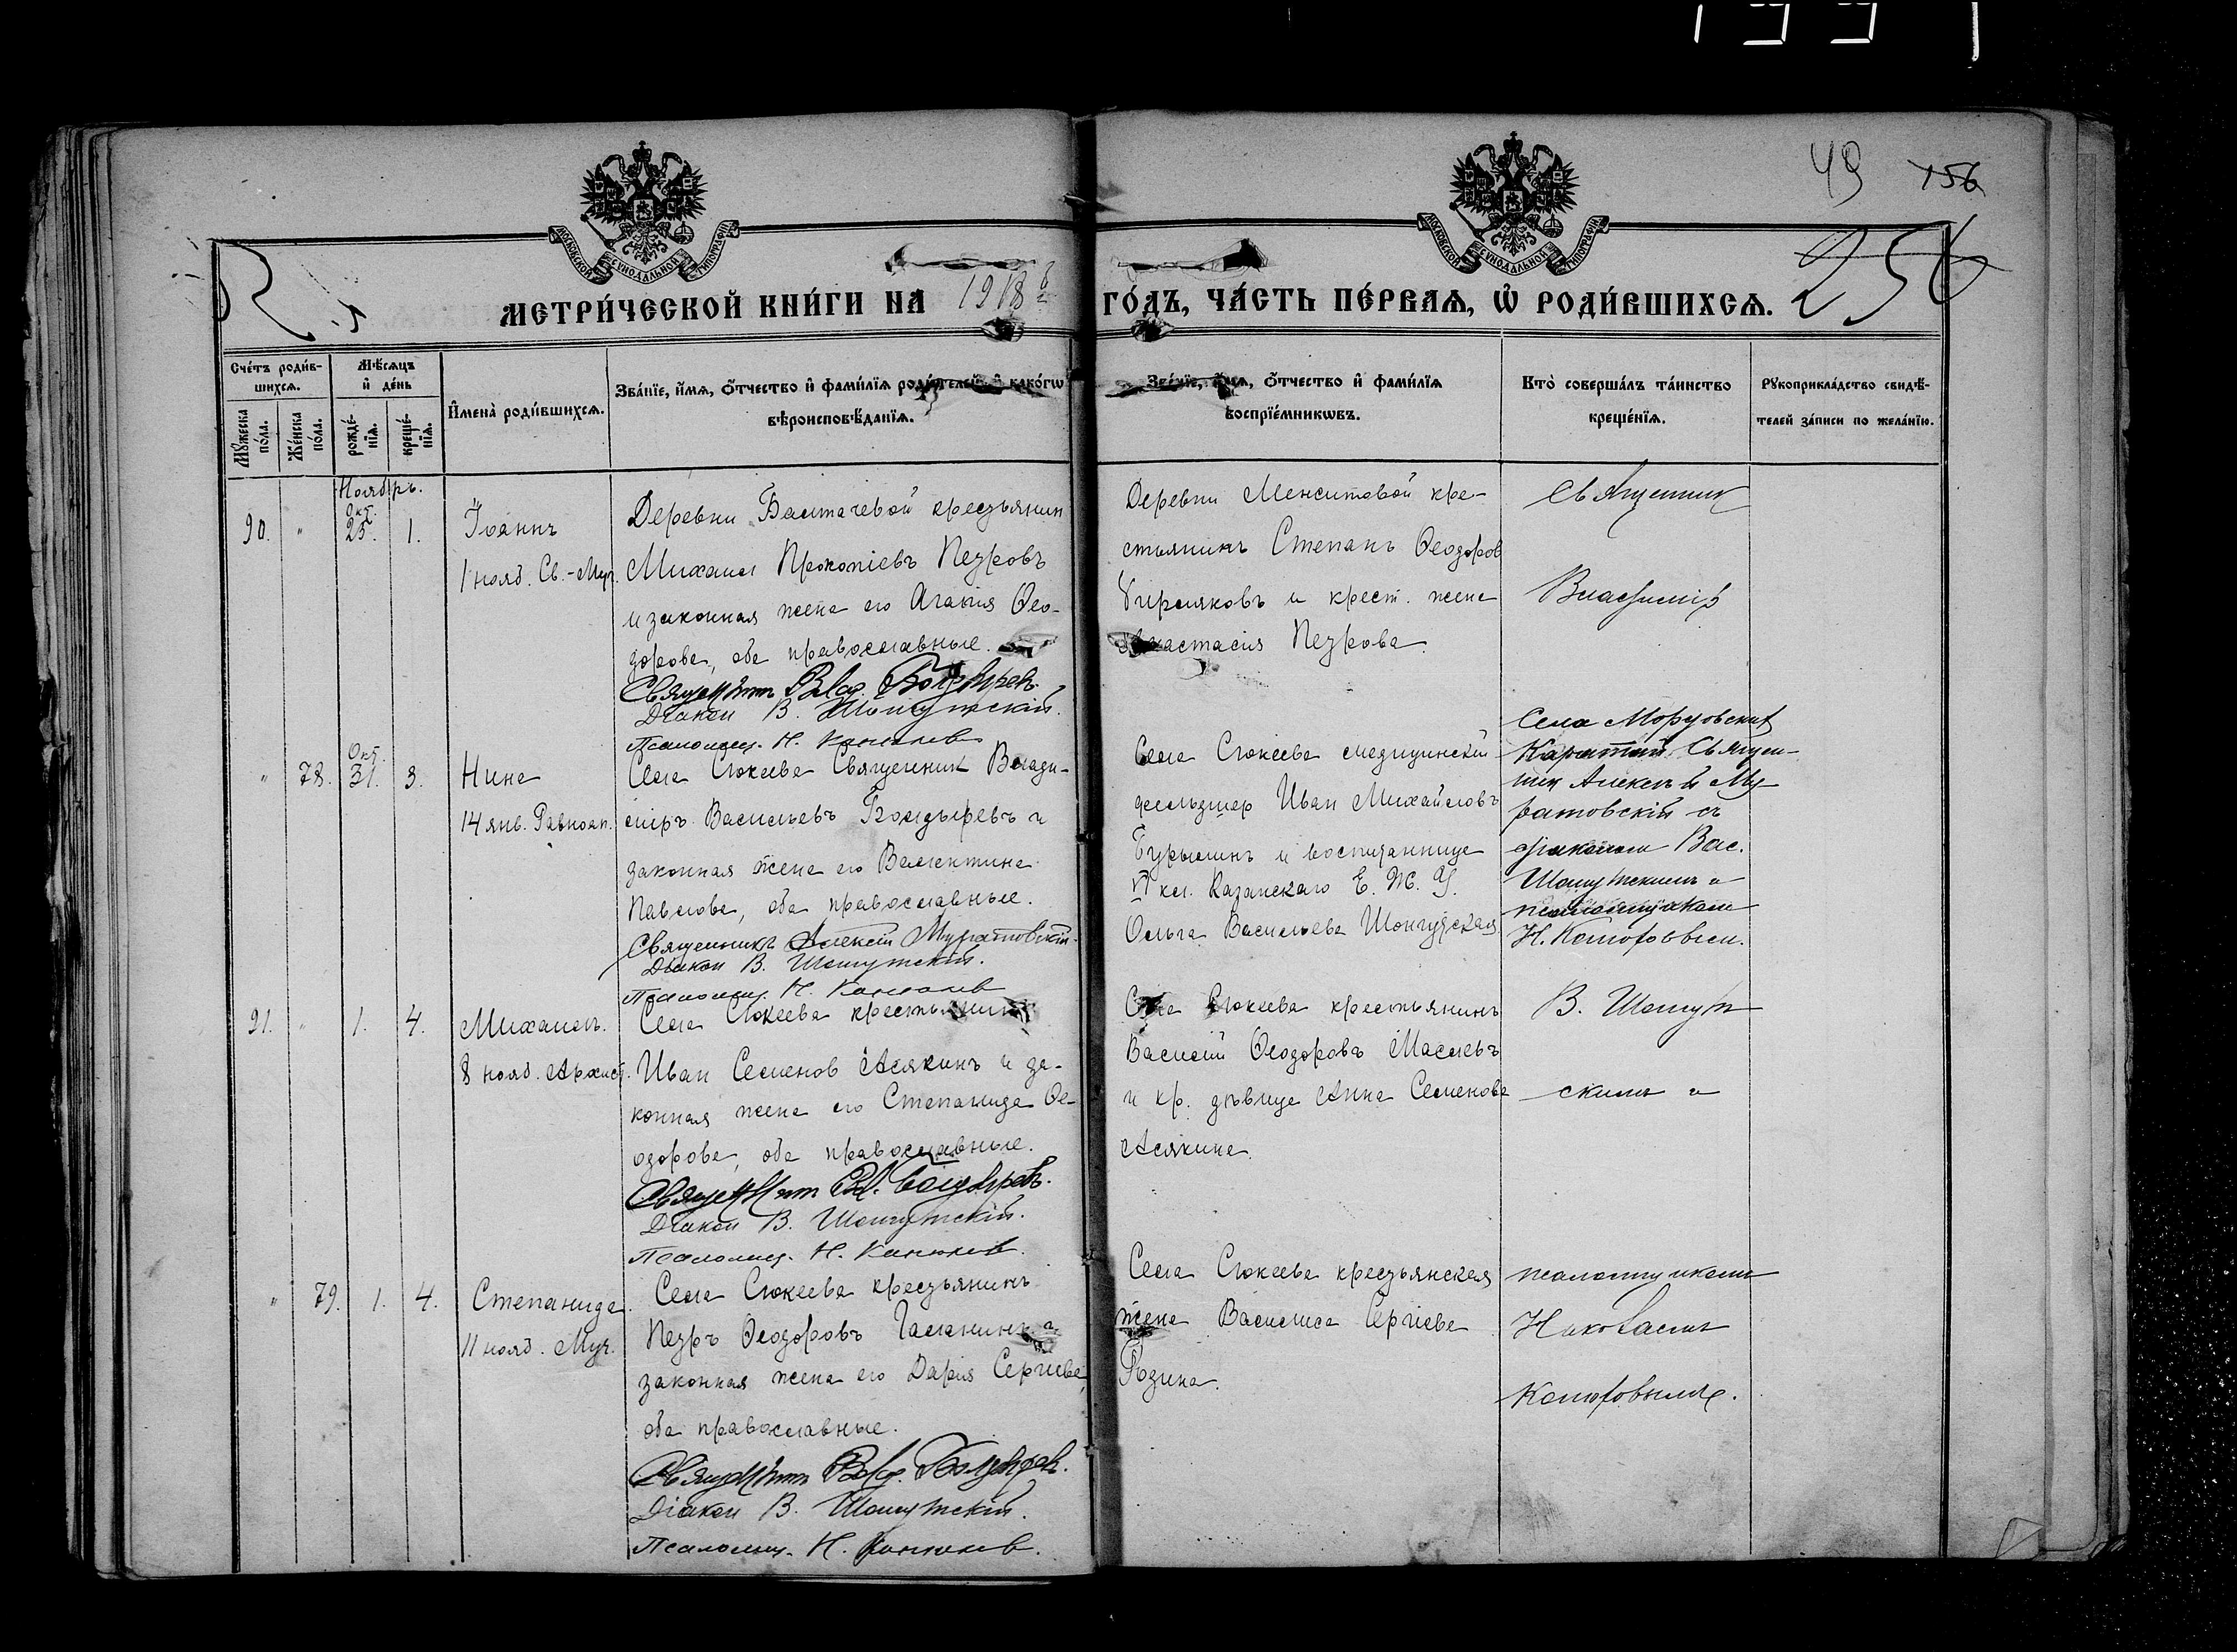 49 156
МОСКОВСКОЙ СѴНОДАЛЬНОЙ ТИПОГРАФІИ
МОСКОВСКОЙ СѴНОДАЛЬНОЙ ТИПОГРАФІИ
МЕТРИ́ЧЕСКОЙ КНИ́ГИ НА 1918 ГО́ДЪ, ЧА́СТЬ ПЕ́РВАѦ, Ѡ҆ РОДИ́ВШИХСѦ. 256
Счéтъ роди́в-
шихсѧ.
Мꙋ́жеска по́ла.
Же́нска по́ла.
Мѣ́сѧцъ
и҆ де́нь
рожде́-
нїѧ.
креще́-
нїѧ.
И҆мена̀ роди́вшихсѧ.
Зва́нїе, и҆́мѧ, ѻ҆́тчество и҆ фами́лїѧ роди́телей, и҆ како́гѡ
вѣроисповѣ́данїѧ.
Зва́нїе, и҆́мѧ, ѻ҆́тчество и҆ фами́лїѧ
воспрїе́мникѡвъ.
Кто̀ соверша́лъ та́инство
креще́нїѧ.
Рꙋкоприкла́дство свидѣ́-
телей за́писи по жела́нїю.
Ноябрь.
90. " Окт. 25. 1.
Іоаннъ
1 нояб. Св.-Муч.
Деревни Бактачевой крестьянин
Михаил Прокопіевъ Петровъ
и законная жена его Агафія Ѳео-
дорова, оба православные.
Священникъ Влад. Болдырев.
Діакон В. Шонгутскій.
Псаломщ. Н. Канюков
Деревни Менситовой кре-
стьянинъ Степанъ Ѳеодоров
и крест. жена
Анастасія Петрова.
Священник
Владиміръ
" 78. Окт. 31. 3.
Нина
14 янв. Равноап.
Села Сюкеева Священник Влади-
міръ Васильевъ Болдыревъ и
законная жена его Валентина
Павлова, оба православные.
Священникъ Алексій Муратовскій.
Діакон В. Шонгутскій.
Псаломщ. Н. Канюков
Села Сюкеева медицинскій
фельдшер Иван Михайловъ
Бурылинъ и воспитанница
VI кл. Казанскаго Е. Ж. У.
Ольга Васильева Шонгутская
Села Мордовских
Каратай Священ-
ник Алексѣй Му-
ратовскій съ
діаконом Вас.
Шонгутским и
псаломщиком
Н. Канюковым.
91. " 1. 4.
Михаилъ.
8 нояб. Архист.
Села Сюкеева крестьянин
Иван Семенов Асякинъ и за-
конная жена его Степанида Ѳе-
одорова, оба православные.
Священникъ Вл. Болдырев.
Діакон В. Шонгутскій.
Псаломщ. Н. Канюков.
Села Сюкеева крестьянинъ
Василій Ѳеодоровъ Маслевъ
и кр. дѣвица Анна Семенова
Асякина.
В. Шонгут
ским и
" 79. 1. 4.
Степанида.
11 нояб. Муч.
Села Сюкеева крестьянинъ
Петръ Ѳеодоровъ Галанинъ и
законная жена его Дарія Сергіева,
оба православные.
Священникъ Влад. Болдырев.
Діакон В. Шонгутскій.
Псаломщ. Н. Канюков.
Села Сюкеева крестьянская
жена Василиса Сергіева
псаломщиком
Николаем
Канюковымъ.